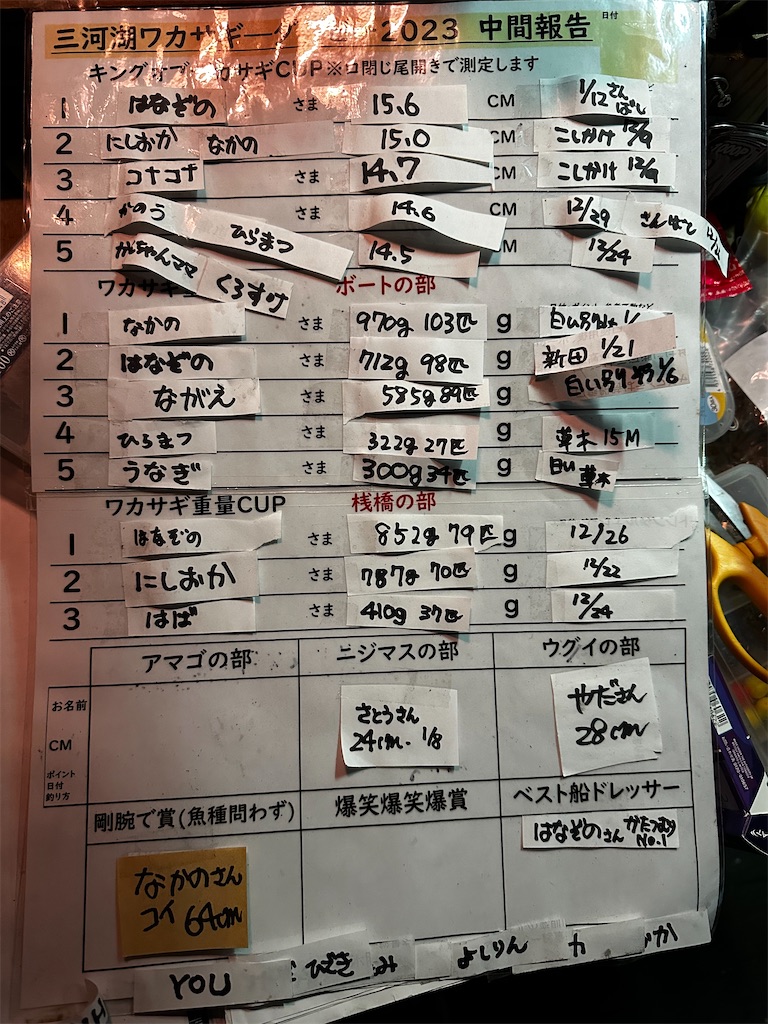 日付
三河湖ワカサギ 2023 中間報告
キングオブ カサギCUP※口閉じ尾開きで測定します
1 はなぞの さま 15.6 CM 1/12 さんばし
2 にしおか なかの 15.0 CM こしかけ 12/9
3 コナコナ さま 14.7 CM こしかけ 12/9
4 かのう ひらまつ さま 14.6 CM 12/29 さんばし
5 がちゃんママ くろすけ 14.5 M 12/24
ワカサギ重量 ボートの部
1 なかの さま 970g 103匹 g
2 はなぞの さま 712g 98匹 g 新田 1/21
3 ながえ さま 585g 89匹 g 1/6
4 ひらまつ さま 322g 27匹 g 草木 15M
5 うなぎ さま 300g 34匹 g 白い 草木
ワカサギ重量CUP 桟橋の部
1 はなぞの さま 852g 79匹 g 12/26
2 にしおか さま 787g 70匹 g 12/22
3 はば さま 410g 37匹 g 12/24
アマゴの部 ニジマスの部 ウグイの部
お名前 さとうさん やださん
CM 24cm. 1/8 28cm
ポイント
日付
釣り方
剛腕で賞(魚種問わず) 爆笑爆笑爆賞 ベスト船ドレッサー
はなぞのさん かたつむり No.1
なかのさん
コイ 64cm
YOU ひでき み よしりん カ か